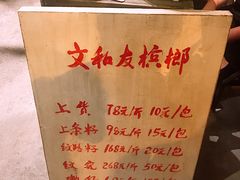 文和友槟榔
上货 78元/斤 10元/包
上条籽 98元/斤 15元/包
纹路籽 168元/斤 20元/包
纹花 268元/斤 50元/包